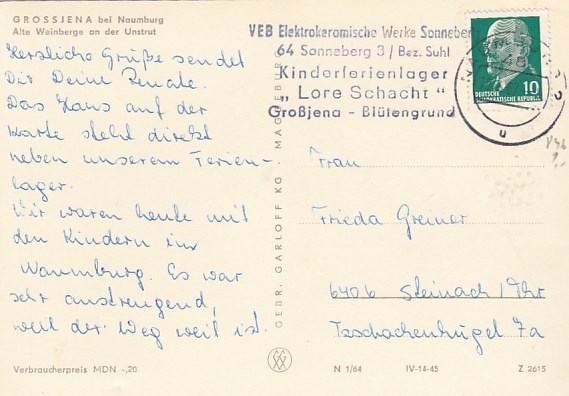 GROSSJENA bei Naumburg
Alte Weinberge an der Unstrut
Herzliche Grüße sendet
Dir Deine Renate.
Das Haus auf der
Karte steht direkt
neben unserem Ferien-
lager.
Wir waren heute mit
den Kindern in
Naumburg. Es war
sehr anstrengend,
weil der Weg weit ist.
Verbraucherpreis MDN -,20
GEBR. GARLOFF KG MAGDEBURG
VEB Elektrokeramische Werke Sonneberg
64 Sonneberg 3 / Bez. Suhl
Kinderferienlager
„ Lore Schacht "
Großjena - Blütengrund
DEUTSCHE
DEMOKRATISCHE REPUBLIK
10
u
Frau
Frieda Greiner
6406 Steinach/Thr
Tzschachenhügel 7a
N 1/64 IV-14-45 Z 2615